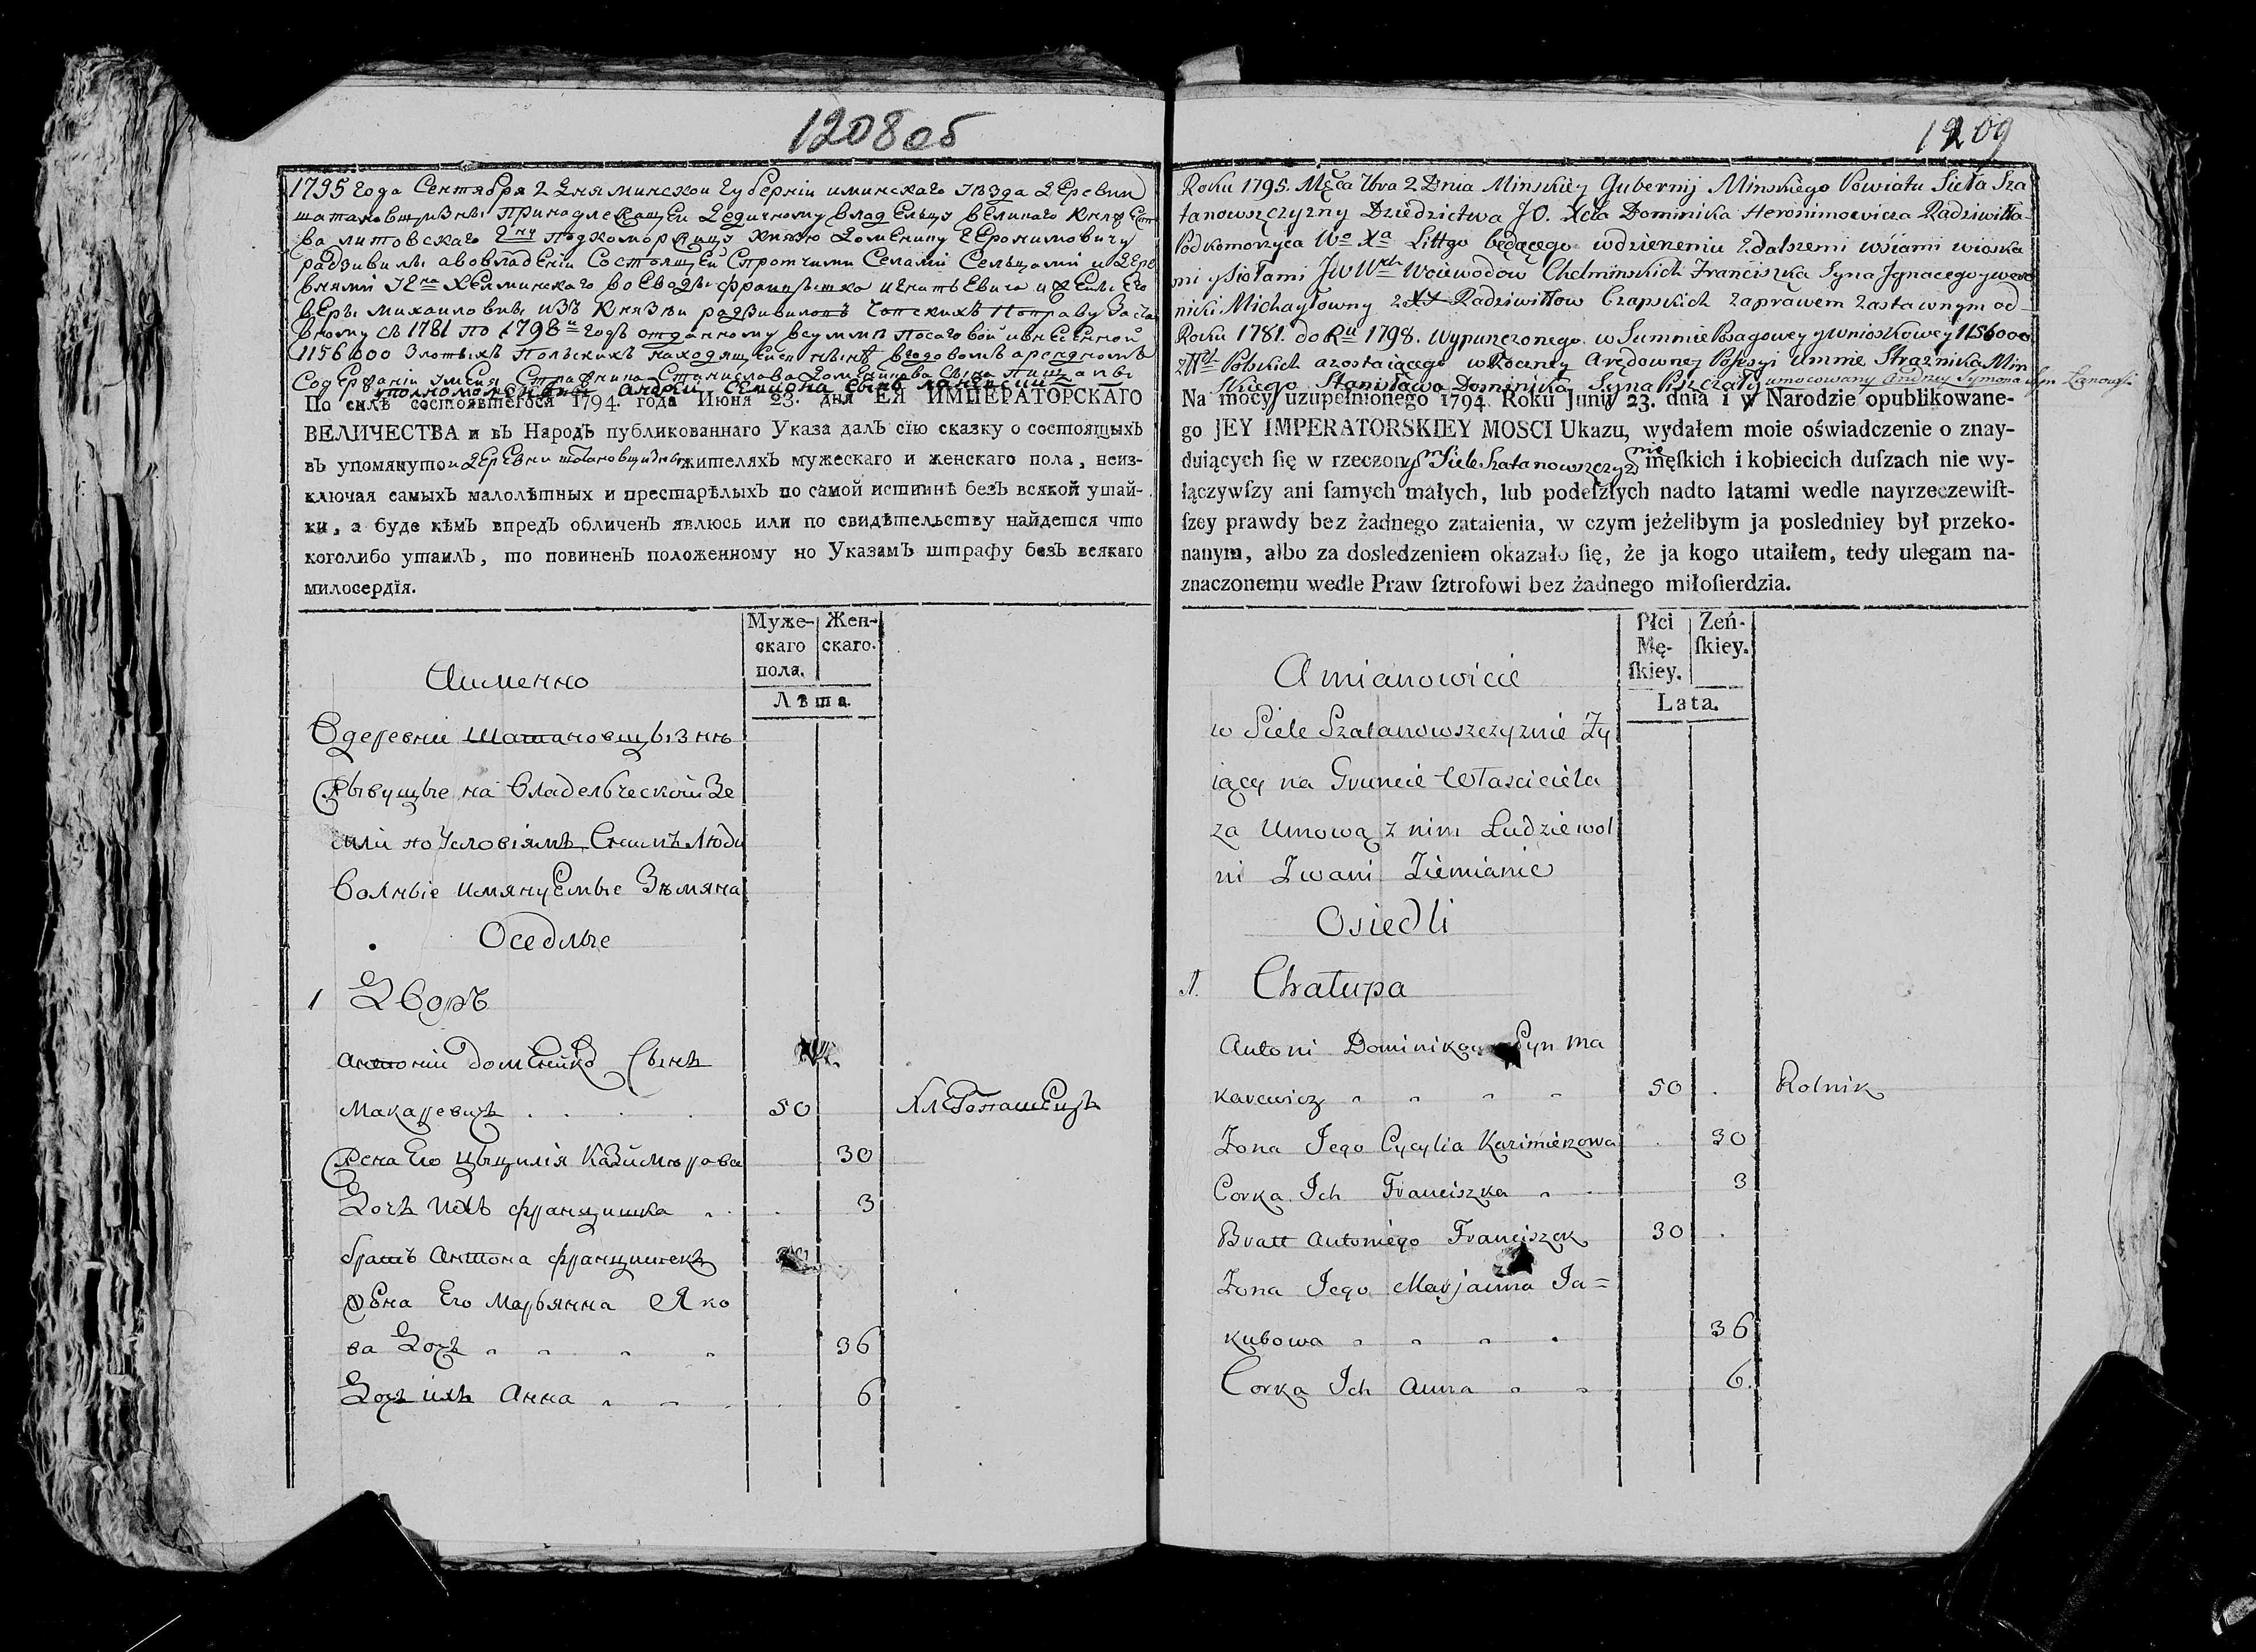 1208 об
1795 года Сентября 2 дня минской губерніи и минскаго уѣзда деревни
шатановщизны принадлежащей дедичному владельцу великаго княжест
ва литовскаго подкоморжицу князю доменику геронимовичу
радзивилы а во владѣніи состоящей с протчими селами сельцами и дере
внями хелминскаго воеводы францышка игнатьевича и жены его
веры михаиловны изъ князьи радзивиловъ чапскихъ по праву заста
вному съ 1781 по 1798 годъ отданному в сумме посаговой и внесенной
1156000 злотыхъ польскихъ находящейся нынѣ в годовомъ арендномъ
содержаніи у меня стражника станислава доменикова сына пищалы
уполномоченный андрей семиона сынъ
По силѣ состоявшегося 1794. года Июня 23. дня ЕЯ ИМПЕРАТОРСКАГО
ВЕЛИЧЕСТВА и въ Народъ публикованнаго Указа далъ сїю сказку о состоящыхъ
въ упомянутои деревни шатановщизны жителяхъ мужескаго и женскаго пола, неиз-
ключая самыхъ малолѣтных и престарѣлыхъ по самой истиннѣ безъ всякой утай-
ки, а буде кѣмъ впредъ обличенъ явлюсь или по свидѣтельству найдется что
коголибо утаилъ, то повиненъ положенному по Указамъ штрафу безъ всякаго
милосердїя.
Муже- Жен-
скаго скаго.
пола.
Лѣта.
Аименно
В деревни Шатановщызнѣ
Жывущые на Владельческой Зе
мли по Условіямъ С нимъ Люди
Волные имянуемые Земяна
Оседлые
1 Дворъ
Антоній Доменико Сынъ
Макаревичъ . . . . 50 Хлебопашецъ
Жена Его Цыцилія Казимирова 30
Дочь ихъ францишка 3
братъ Антона францишекъ
Жена Его Марьянна Яко
ва Дочь 36
Дочь ихъ Анна 6
1209
Roku 1795. Męca 7bra 2 Dnia Minskiey Gubernij Minskiego Powiatu Sieła Sza
tanowszczyzny Dziedzictwa JO. Xcia Dominika Heronimowicza Radziwiłła
Podkomorzyca Wo Xa Littgo będącego w dzierżeniu z dalszemi wsiami wioska
mi y siołami JW Woiewodow Chełminskich Franciszka Syna Jgnacego y Wero
niki Michayłowny z XX Radziwiłłow Czapskich za prawem zastawnym od
Roku 1781. do Ru 1798. wypuszczonego w Summie Posagowey y wnioskowey 1156000
złłch Polskich a zostaiącego w Roczney Arędowney Possesyi u mnie Strażnika Min
skiego Stanisława Dominika Syna Pszczały umocowany Andrzey Symona syn Łanowski
Na mocy uzupełnionego 1794. Roku Junij 23. dnia i w Narodzie opublikowane-
go JEY IMPERATORSKIEY MOSCI Ukazu, wydałem moie oświadczenie o znay-
duiących ſię w rzeczonym Siele Szatanowszczyznie męſkich i kobiecich duſzach nie wy-
łączywſzy ani ſamych małych, lub podeſzłych nadto latami wedle nayrzeczewiſt-
ſzey prawdy bez żadnego zataienia, w czym jeżelibym ja posledniey był przeko-
nanym, albo za dosledzeniem okazało ſię, że ja kogo utaiłem, tedy ulegam na-
znaczonemu wedle Praw ſztrofowi bez żadnego miłoſierdzia.
Płci Zeń-
Mę- ſkiey.
ſkiey.
Lata.
A mianowicie
w Siele Szatanowszczyznie Ży
iący na Gruncie Własciciela
za Umową z nim Ludzie wol
ni Zwani Ziemianie
Osiedli
1. Chałupa
Antoni Dominikow Syn Ma
karewicz 50 Rolnik
Żona Jego Cycylia Kazimierzowa 30
Corka Ich Franciszka 3
Bratt Antoniego Franciszek 30
Żona Jego Marjanna Ja=
kubowa 36
Corka Ich Anna 6.